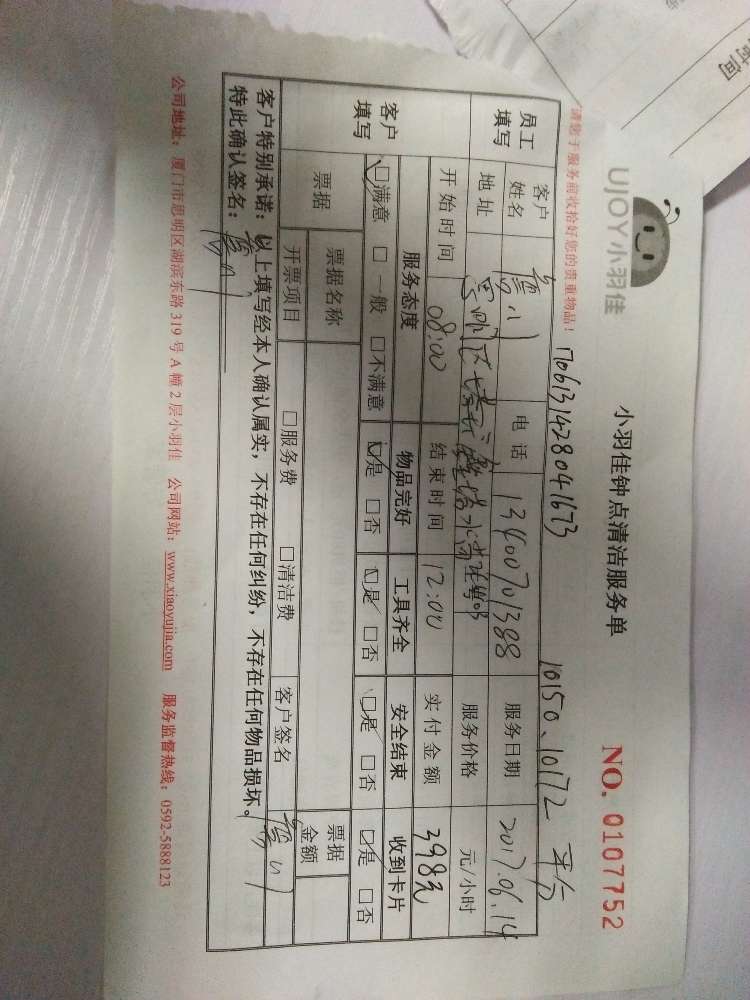 UJOY小羽佳
小羽佳钟点清洁服务单
NO. 0107752
请您于服务前收拾好您的贵重物品！
1706131428041673
10150、10172
员工填写
客户姓名
电话 13400701388
服务日期 2017.06.14
地址
服务价格 元/小时
开始时间 08:00 结束时间 12:00 实付金额 398元
客户填写
服务态度 物品完好 工具齐全 安全结束 收到卡片
☑满意 □一般 □不满意 ☑是 □否 ☑是 □否 ☑是 □否 ☑是 □否
票据 票据名称 票据金额
开票项目 □服务费 □清洁费 客户签名
客户特别承诺：以上填写经本人确认属实，不存在任何纠纷，不存在任何物品损坏。
特此确认签名：
公司地址：厦门市思明区湖滨东路319号A幢2层小羽佳 公司网站：www.xiaoyujia.com 服务监督热线：0592-5888123
时间